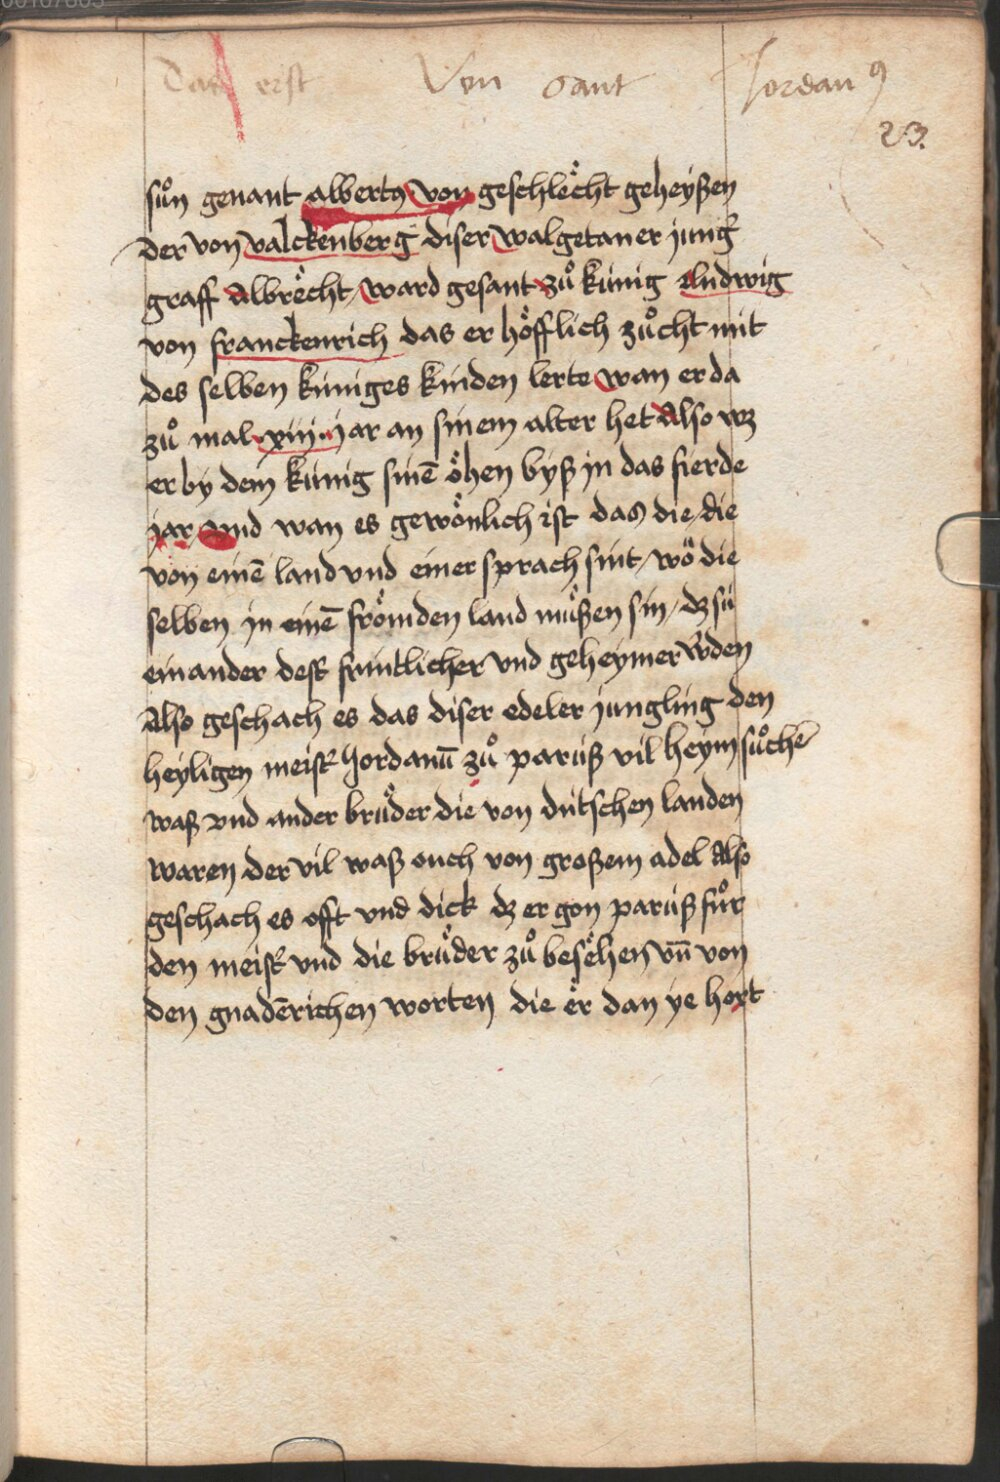 Das erst Von Sant Jordanꝰ
23.
sůn genant albertꝰ von geschlecht geheyßen
der von valckenberg diser walgetaner jung
graff Albrecht ward gesant zů künig Ludwig
von franckenrich das er höfflich zůcht mit
des selben küniges kinden lerte wan er da
zů mal xiij jar an sinem alter het Also wz
er by dem künig sinē öhen byß jn das fierde
jar vnd wan es gewönlich ist das die die
von einē land vnd einer sprach sint / wö die
selben jn einē frömden land müßen sin / dz sü
einander dest früntlicher vnd geheymer w̄den
Also geschach es das diser edeler jungling den
heyligen meistˀ Jordanū zů paryß vil heym sůchē
waß vnd ander brüder die von dütschen landen
waren der vil waß ouch von großem adel Also
geschach es offt vnd dick dz er gon paryß für
den meistˀ vnd die brüder zů besehen vn̄ von
den gnadērichen worten die er dan ye hort